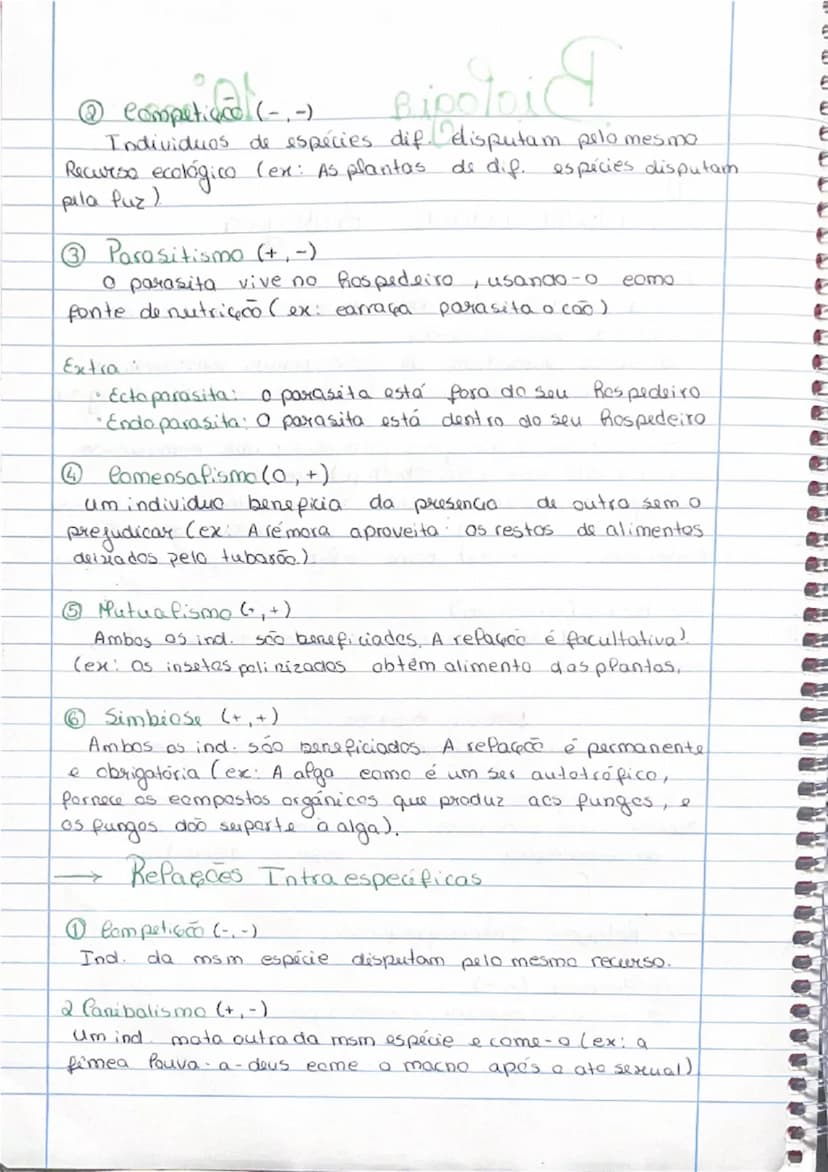 Biologia 10º
② Competição (-,-)
Individuos de espécies dif. disputam pelo mesmo
Recurso ecológico (ex: As plantas de dif. espécies disputam
pela luz)
③ Parasitismo (+,-)
O parasita vive no hospedeiro, usando-o como
fonte de nutrição (ex: carraça parasita o cão)
Extra:
• Ectoparasita: o parasita está fora do seu hospedeiro
• Endoparasita: O parasita está dentro do seu hospedeiro
④ Comensalismo (0,+)
Um individuo beneficia da presencia de outro sem o
prejudicar (ex: A rémora aproveita os restos de alimentos
deixados pelo tubarão)
⑤ Mutualismo (+,+)
Ambos os ind. são beneficiados. A relação é facultativa)
(ex: Os insetos polinizados obtêm alimento das plantas.
⑥ Simbiose (+,+)
Ambos os ind. são beneficiados. A relação é permanente
e obrigatória (ex: A alga como é um ser autotrófico,
fornece os compostos orgánicos que produz aos fungos, e
os fungos dão suporte à alga).
→ Relações Intraespecíficas
① Competição (-,-)
Ind. da msm espécie disputam pelo mesmo recurso.
2 Canibalismo (+,-)
Um ind. mata outro da msm espécie e come-o (ex: a
fêmea louva-a-deus come o macho após o ato sexual)